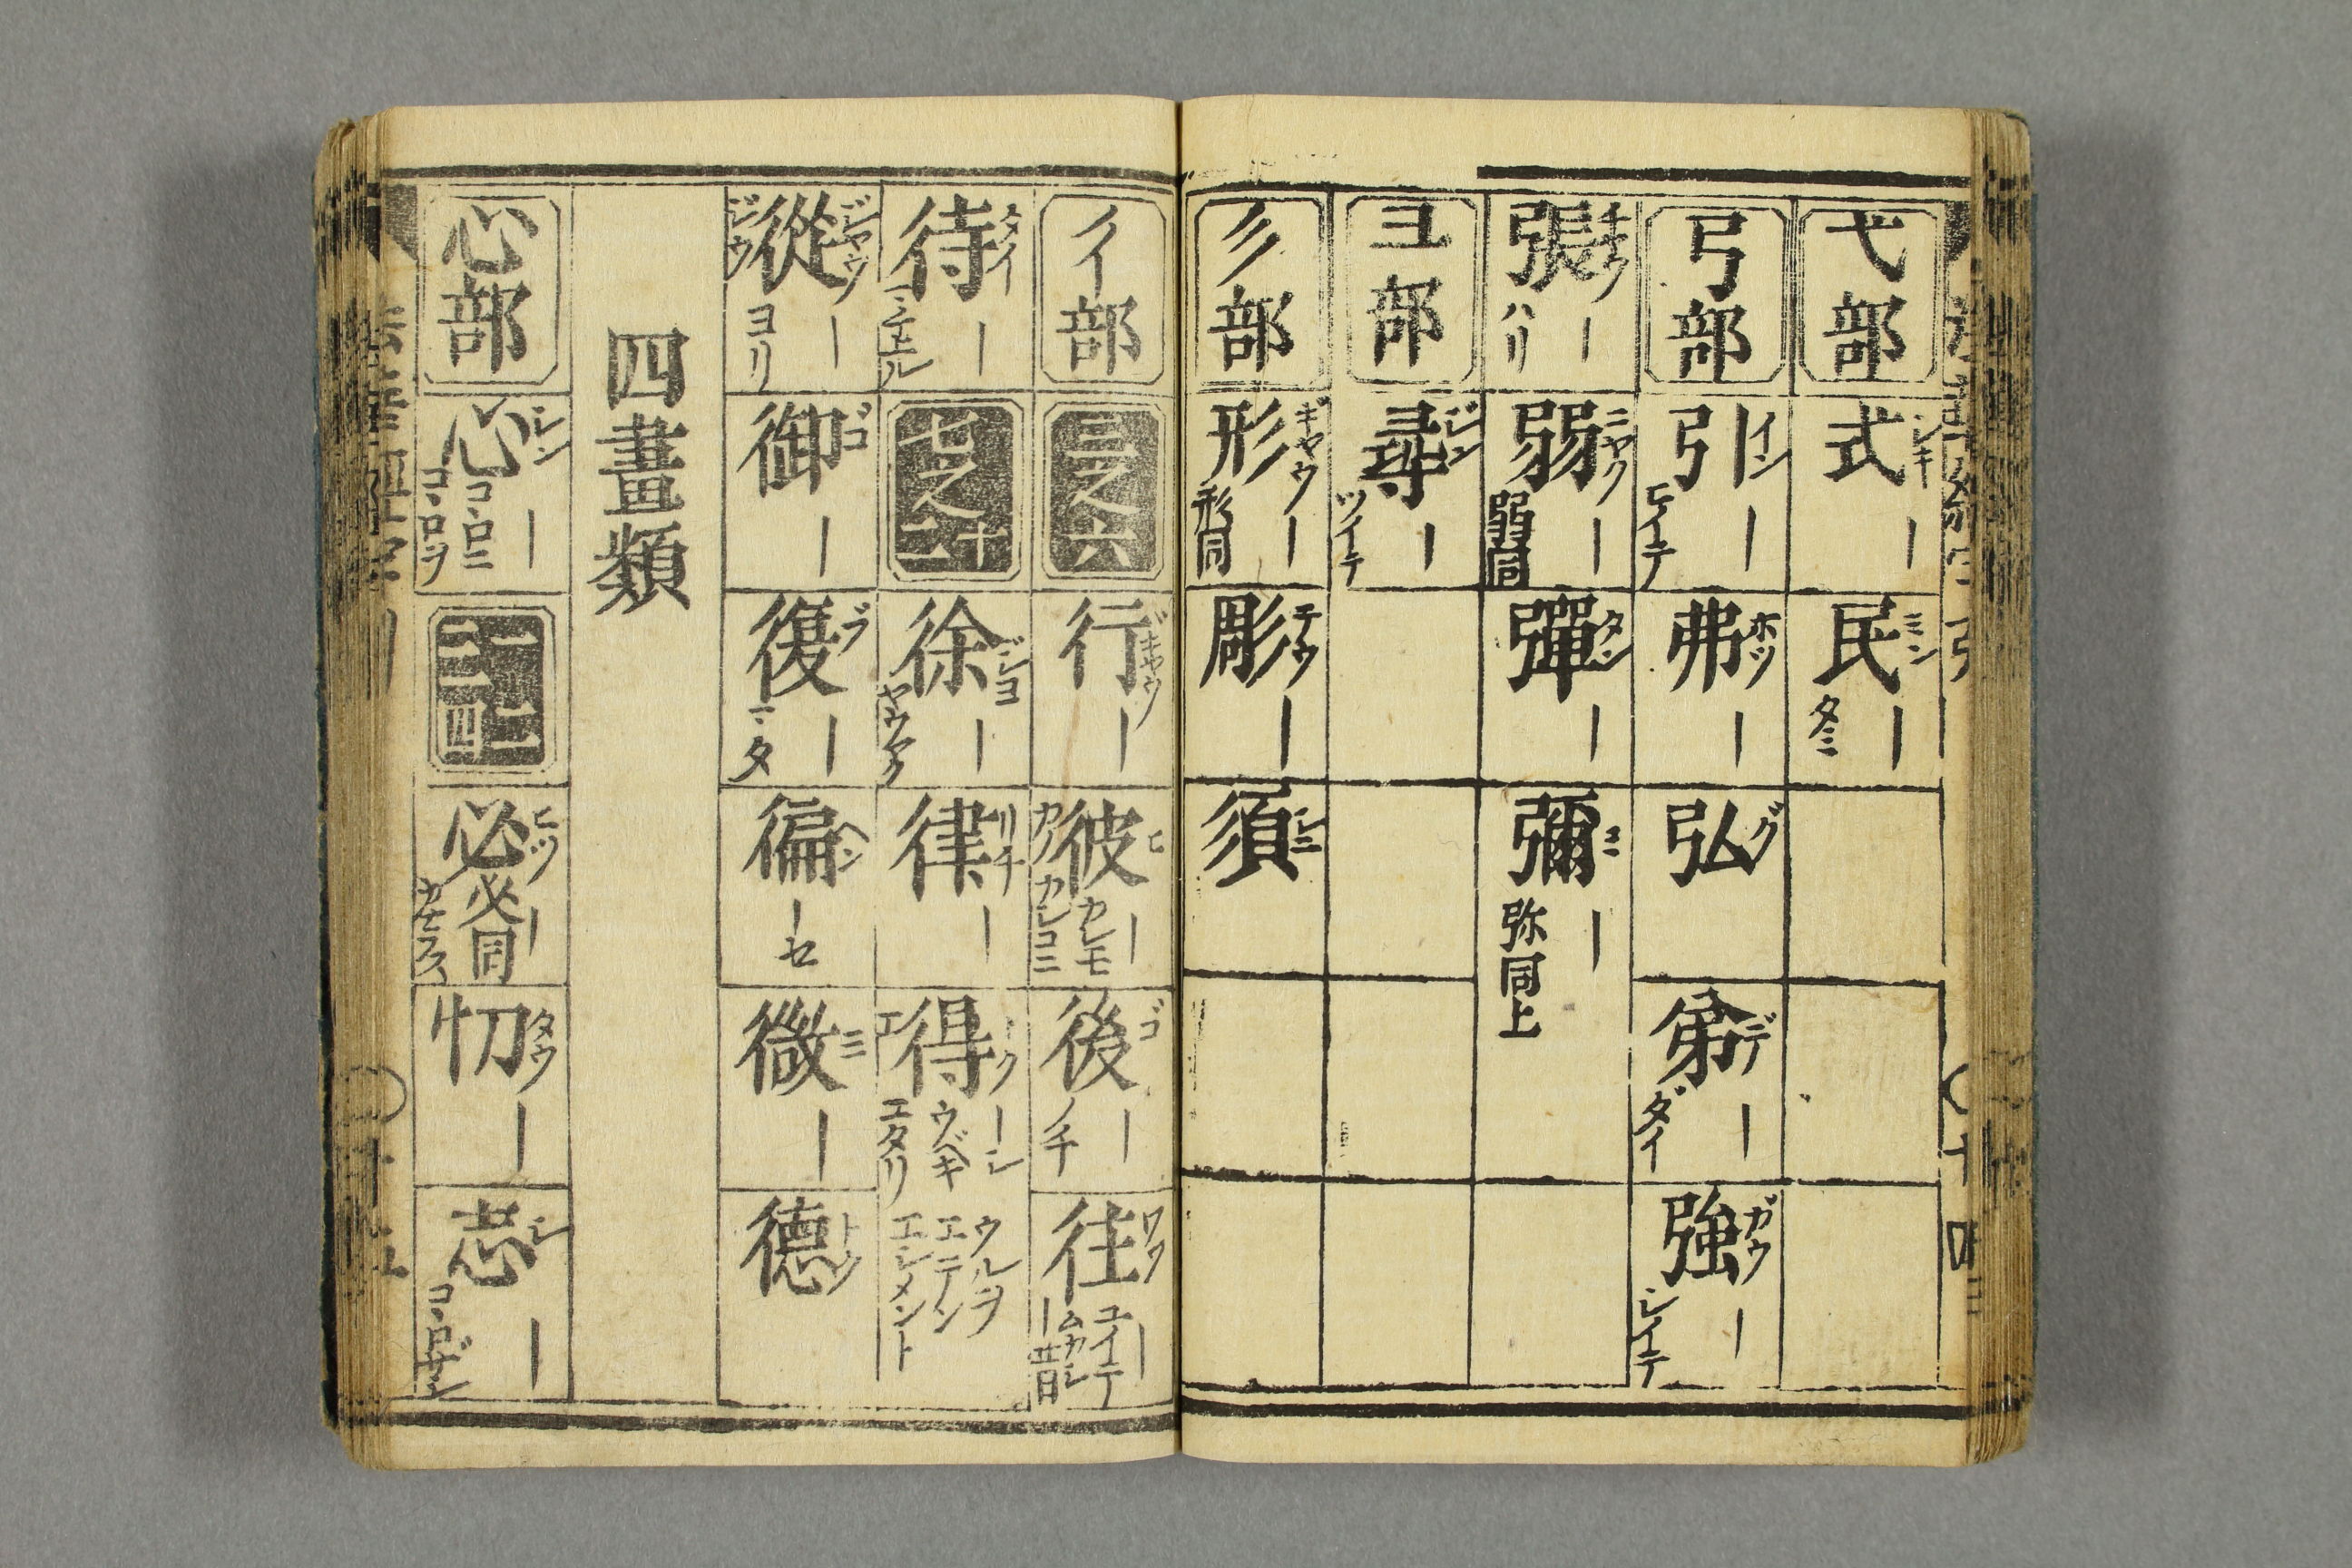 弋部
式 シキ ー
民 ミン ー タミ
弓部
引 イン ー ヒイテ
弗 ホツ ー
弘 グ
弟 デ ー ダイ
強 ガウ ー シイテ
張 チヤウ ー ハリ
弱 ニヤク ー 弱同
彈 タン ー
彌 ミ ー 弥同上
彐部
尋 ジン ー ツイテ
彡部
形 ギヤウ ー 形同
彫 テウ ー
須 シユ
彳部
三之六
行 ギヤウ ー
彼 ヒ ー カノ カレモ カシコニ
後 ゴ ー ノチ
往 ワウ ー ユイテ ムカシ ー昔
待 タイ ー
七之十二
徐 ジヨ ー ヤウヤク
律 リチ ー
得 トク ーシ エ ウベキ エタリ ウルヲ エテン エシメント
從 ジヤウ ー ジウ ヨリ
御 ゴ ー
復 ブ ー マタ
徧 ヘン ーセ
微 ミ ー
德 トク
四畫類
心部
心 シン ー コヽロニ コヽロヲ
一二三四
必 ヒツ ー 必同 カナラス
忉 タウ ー
志 シ ー コヽロザシ